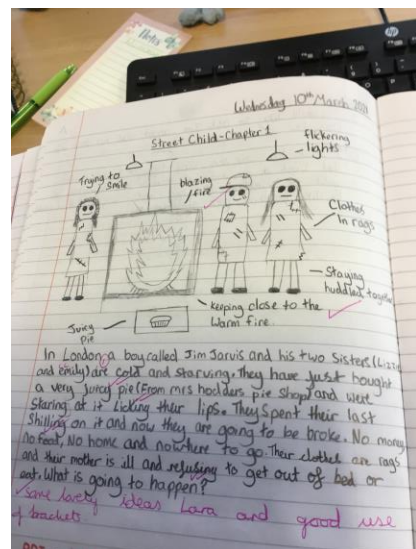 Notes
hp
Wednesday 10th March 2021
Street Child - Chapter 1
flickering
lights
Trying to
smile
blazing
fire
Clothes
In rags
Staying
huddled together
keeping close to the
warm fire
Juicy
pie
In London, a boy called Jim Jarvis and his two Sisters (Lizzie
and emily) are cold and starving. They have just bought
a very juicy pie (From mrs hodders pie shop) and were
Staring at it Licking their lips. They Spent their last
Shilling on it and now they are going to be broke. No money,
no food, No home and nowhere to go. Their clothes are rags
and their mother is ill and refusing to get out of bed or
eat. What is going to happen?
Some lovely ideas Lara and good use
of brackets.